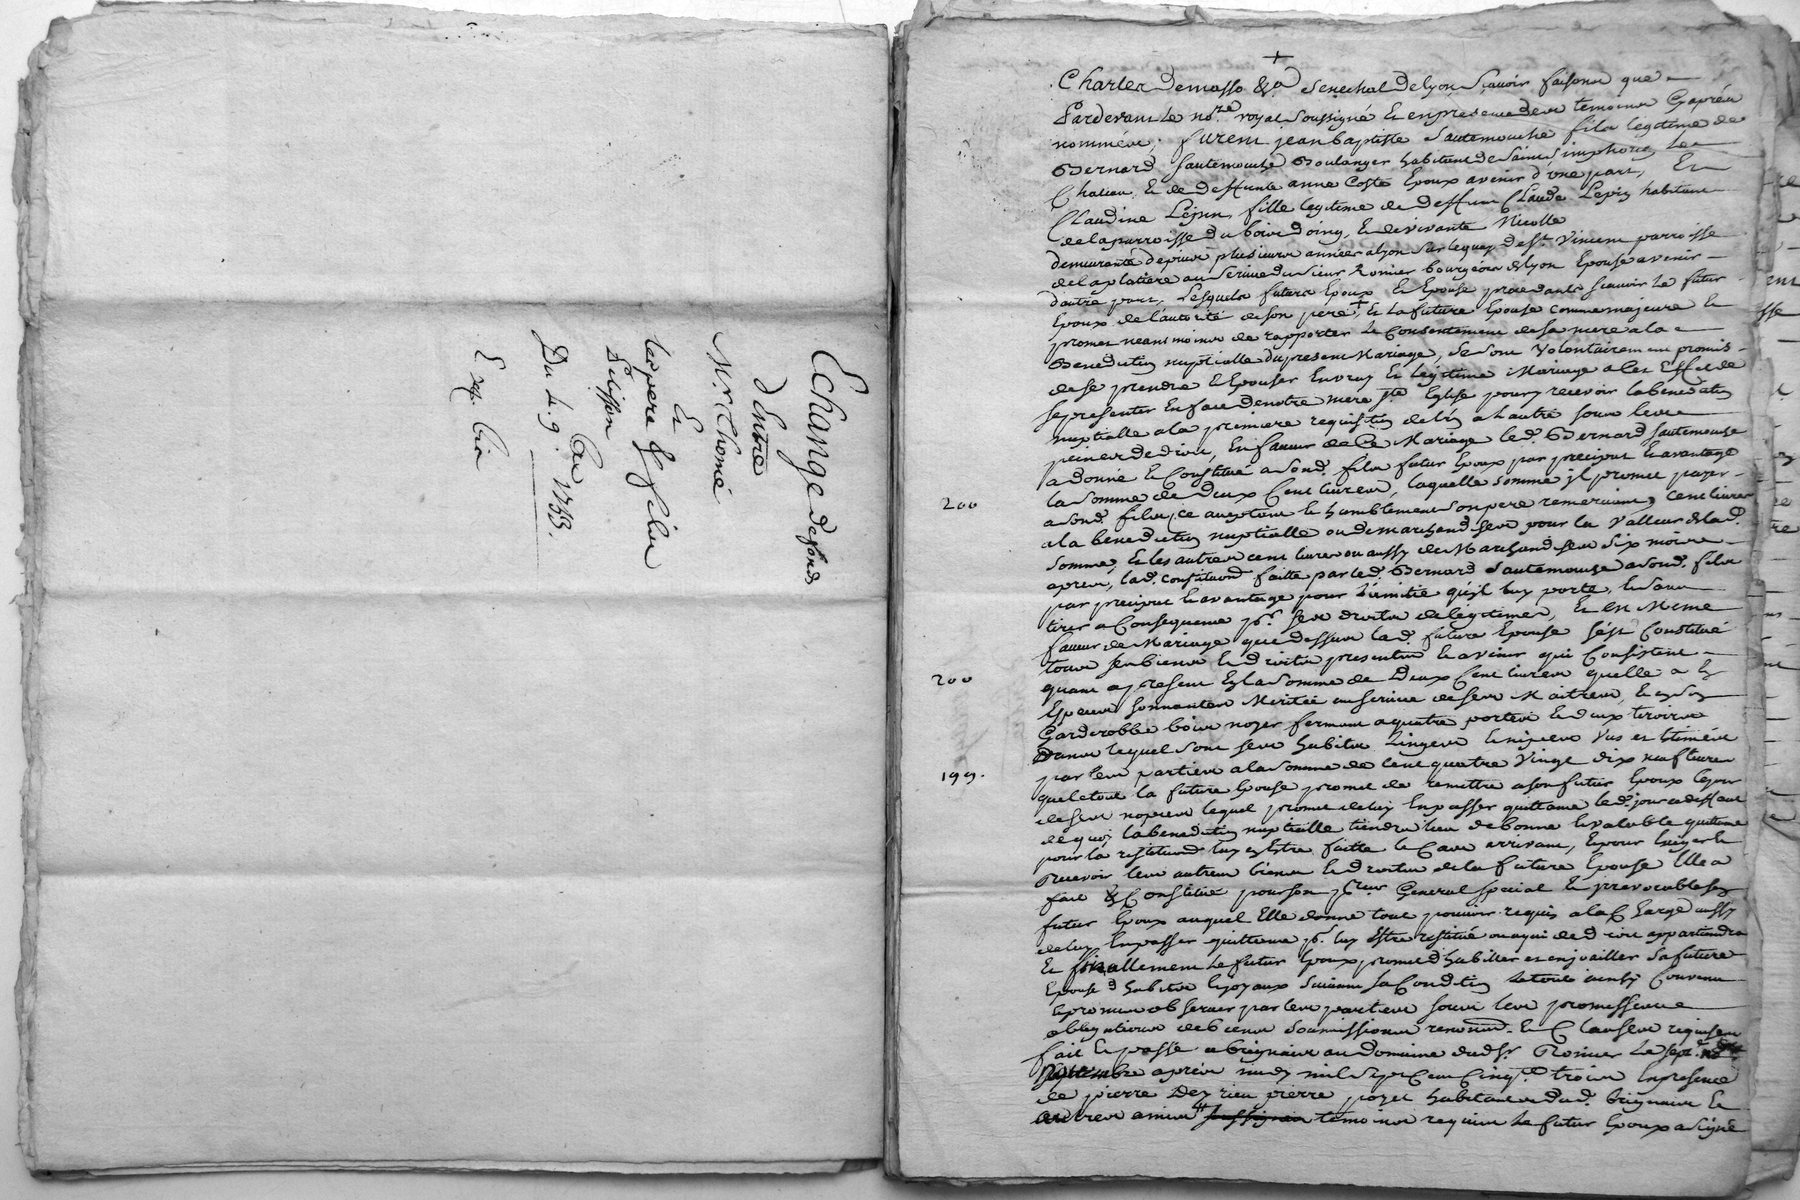 Echange defonds
d'Entre
Mr. Thomé
Et
les pere & fils
Pelisson
Du 4. 9.bre 1753.
Exp. Con
+
Charles Demasso &a senechal de lyon scavoir faisons que
Pardevant Le nore. royal soussigné Et en presence des temoins Cy aprés
nommées, furent jean baptiste sautemouche fils legitime de
Bernard sautemouche Boulanger habitant de saint simphorien Le
Chateau, Et de deffunte anne Coste Epoux avenir d'une part, Et
Claudine Lepin, fille legitime de deffunt Claude Lepin habitant
de la parroisse du bois doing, Et de vivante Nicolle
demeurante depuis plusieurs années a lyon sur le quay de st. Vincent parroisse
de la platiere au service du sieur Ronier bourgeois de lyon Epouse avenir
d'autre part, Lesquels futurs Epoux Et Epouse procedants scavoir Le futur
Epoux de l'autorité de son pere + Et La future Epouse comme majeure Et
promet neantmoins de rapporter Le Consentement de sa mere a la
Benediction nuptialle du present Mariage, se sont Volontairement promis
de se prendre & Epouser En vray Et legitime Mariage a les Effet de
se presenter En face de notre mere ste. Eglise pour y recevoir la benediction
nuptialle a la premiere requisition de l'un a Lautre sous les
peines de droit, En faveur de Ce Mariage led. Bernard sautemouche
a donné Et Constitué a sond. fils futur Epoux par preciput Et avantage
200 la somme de deux Cent livres, laquelle somme il promet payer
a sond. fils, ce acceptant Et humblement son pere remerciant, cent livres
a la benediction nuptialle ou de marchandises pour la Valleur de lad.
somme, Et les autres cent livres ou aussy de Marchandises six mois
aprés, lad. constitution faitte par led. Bernard sautemouche a sond. fils
par preciput Et avantage pour L'amitié qu'il luy porte, Et sans
tirer a Consequence pr. ses droits de legitimes, Et En Meme
faveur de Mariage que dessus lad. future Epouse s'est Constitué
tous ses biens Et droits presents Et avenir qui Consistent
200 quant a present En la somme de Deux Cent livres quelle a En
Especes sonnantes Meritée au service de ses Maitres, Et en un
Garderobbe bois noyer fermant a quatre portes Et deux tiroirs
Dans lequel sont ses habits Linges Et nipes Vus et Estimées
199. par les parties a la somme de Cent quatre Vingt dix neuf livres
que le tout la future Epouse promet de remettre a son futur Epoux le jour
de ses nopces lequel promet de luy En passer quittance led. jour a deffaut
de quoy la benediction nuptialle tiendra lieu de bonne Et valable quittance
pour la restitution luy en Estre faitte le Cas arrivant, Et pour Exiger Et
Recevoir les autres biens Et droits de la future Epouse Elle a
fait & Constitué pour son preur. General special Et irrevocable sond.
futur Epoux auquel Elle donne tout pouvoir requis a la Charge aussy
de luy En passer quittance pr. luy Estre restitué ou a qui de droit appartiendra
Et finallement Le futur Epoux promet d'habiller et enjoailler sa future
Epouse d'habits Et joyaux suivant sa Condition Le tout ainsy Convenu
Et promis observer par les parties sous les promesses
obligations de biens soumissions renond. Et Clauses requises
fait Et passé a brignais au Domaine dud. sr. Ronier Le sept.
septembre aprés midy mil sept Cent Cinqte. trois En presence
de pierre Dezrieu pierre poyet habitants dud. brignais Et
autres amis temoins requis Le futur Epoux a signé